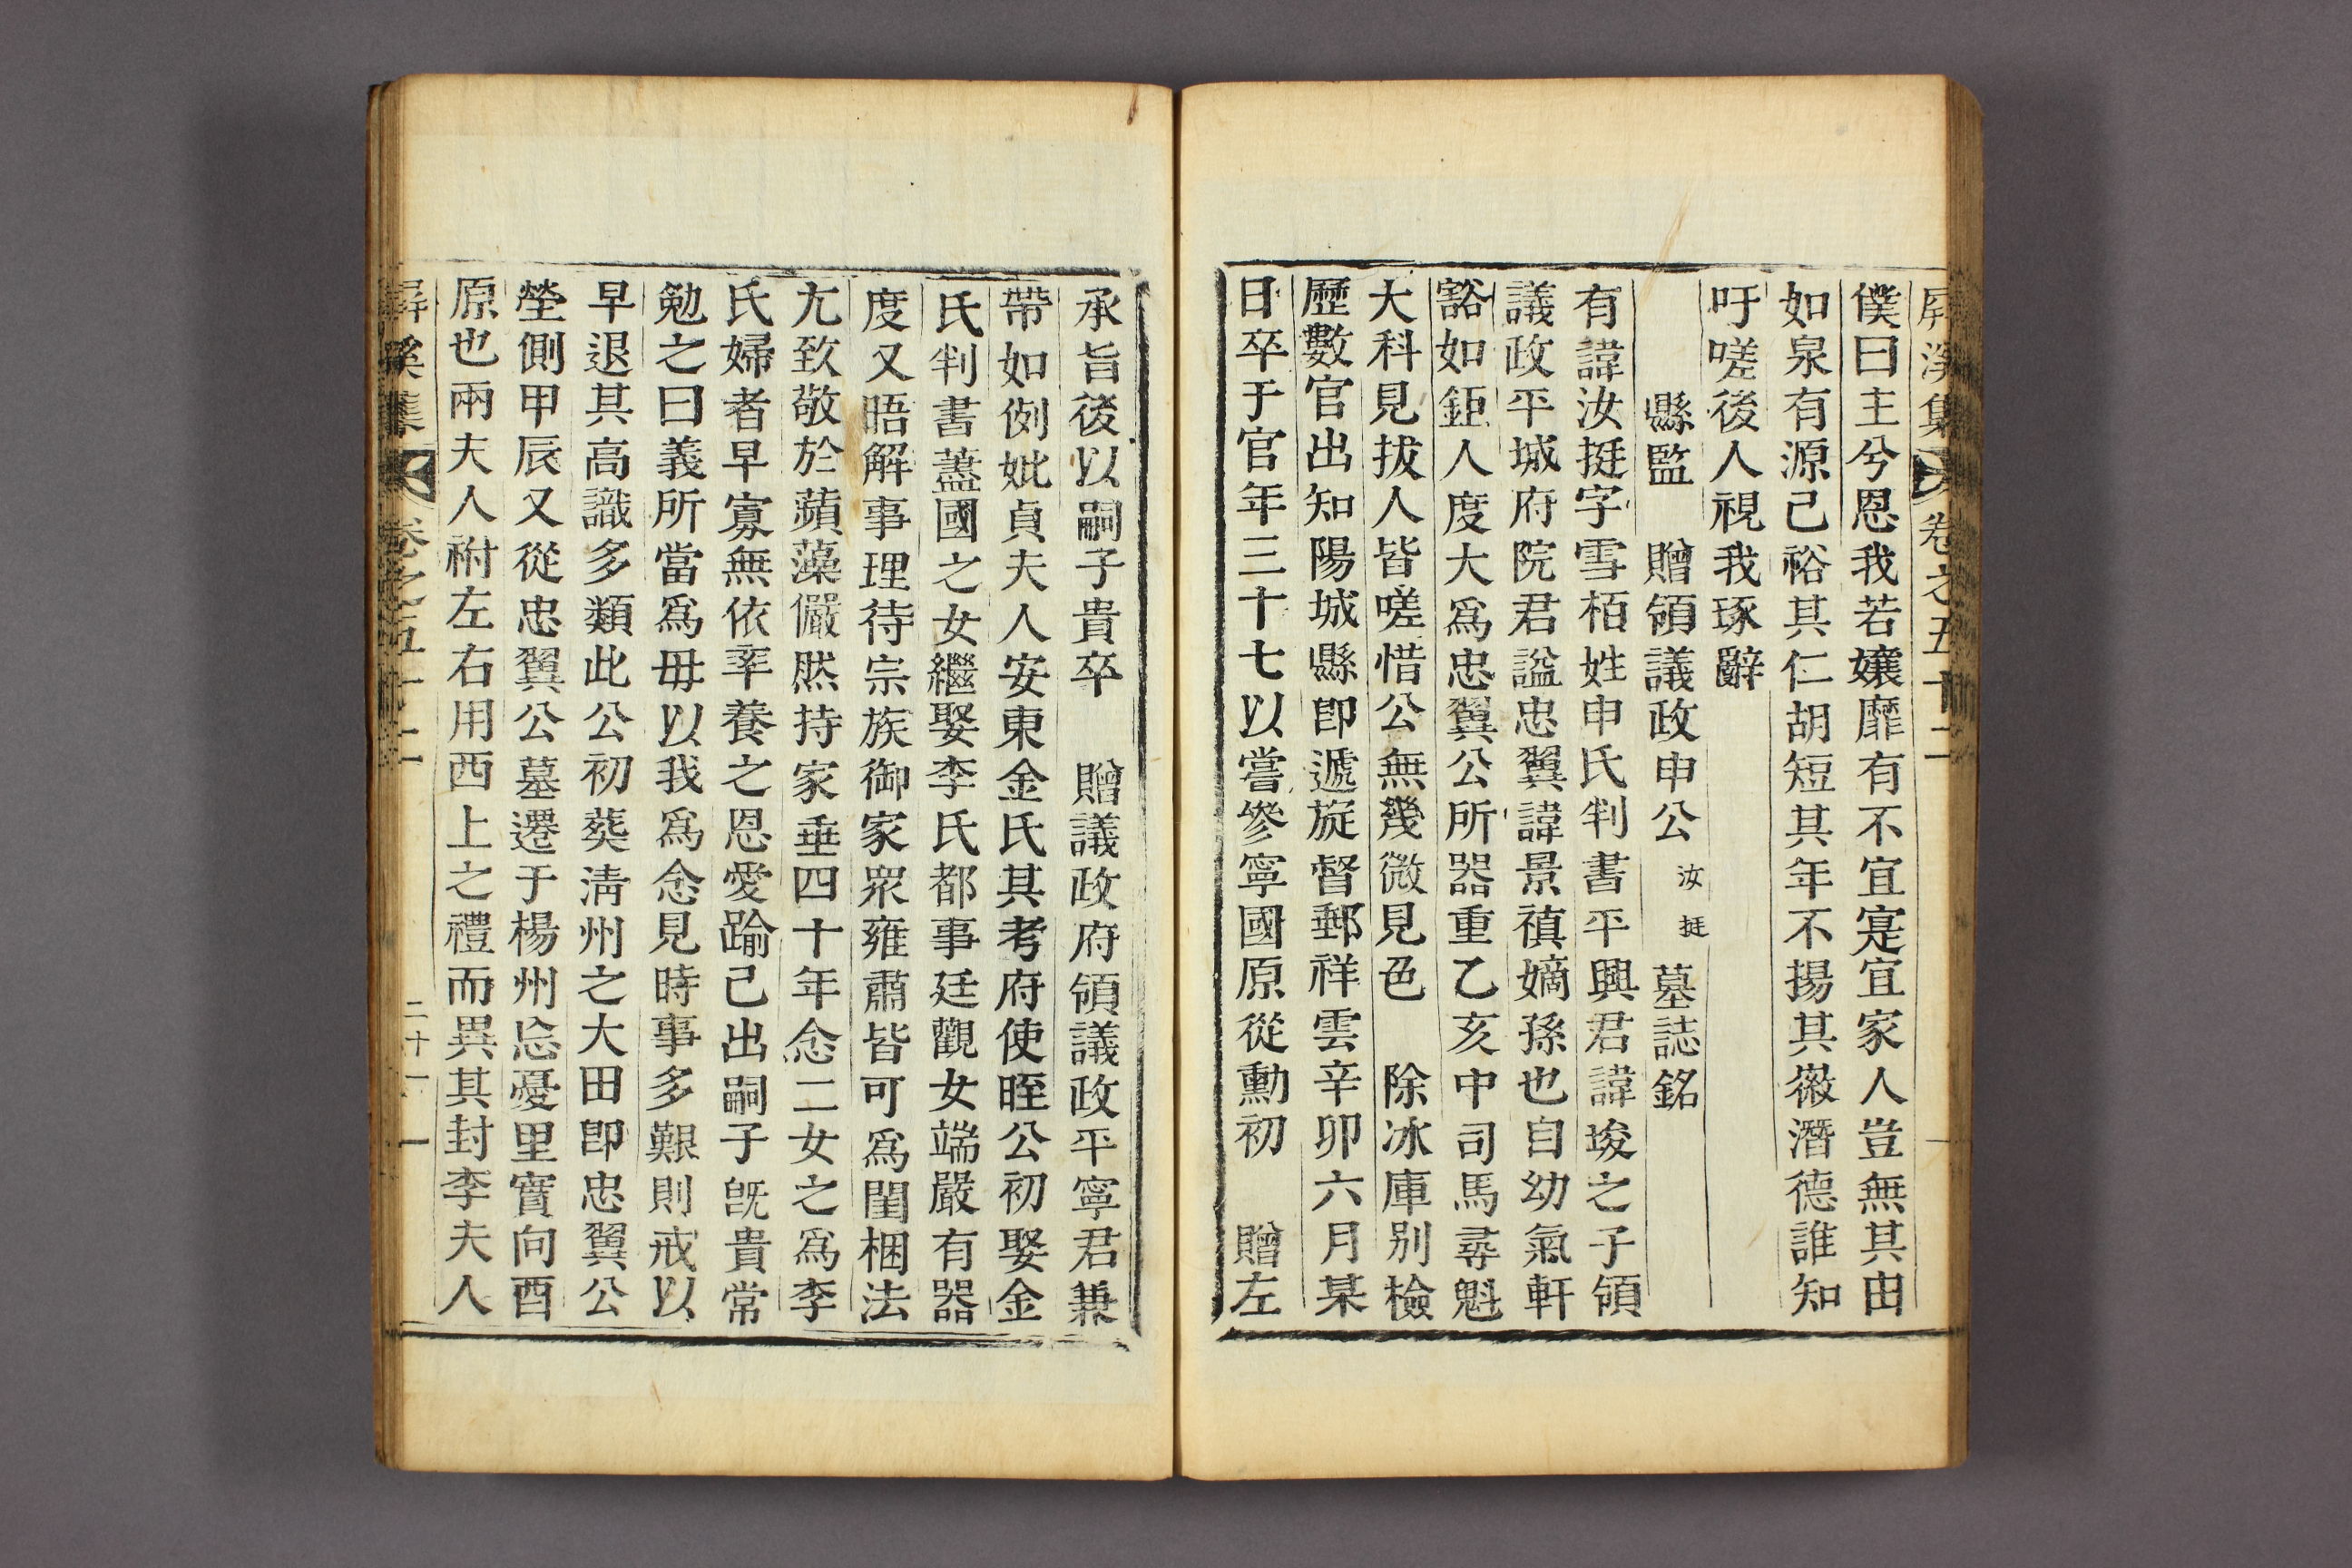 屛溪集 卷之五十二
僕曰主兮恩我若孃靡有不宜寔宜家人豈無其由
如泉有源己裕其仁胡短其年不揚其徽潛德誰知
吁嗟後人視我琢辭
縣監 贈領議政申公汝挺墓誌銘
有諱汝挺字雪栢姓申氏判書平興君諱埈之子領
議政平城府院君謚忠翼諱景禛嫡孫也自幼氣軒
豁如鉅人度大爲忠翼公所器重乙亥中司馬尋魁
大科見拔人皆嗟惜公無幾微見色 除冰庫別檢
歷數官出知陽城縣卽遞旋督郵祥雲辛卯六月某
日卒于官年三十七以嘗參寧國原從勳初 贈左
承旨後以嗣子貴卒 贈議政府領議政平寧君兼
帶如例妣貞夫人安東金氏其考府使晊公初娶金
氏判書藎國之女繼娶李氏都事廷觀女端嚴有器
度又晤解事理待宗族御家衆雍肅皆可爲閨梱法
尤致敬於蘋藻儼然持家垂四十年念二女之爲李
氏婦者早寡無依率養之恩愛踰己出嗣子旣貴常
勉之曰義所當爲毋以我爲念見時事多艱則戒以
早退其高識多類此公初葬淸州之大田卽忠翼公
塋側甲辰又從忠翼公墓遷于楊州忘憂里實向酉
原也兩夫人祔左右用西上之禮而異其封李夫人
屛溪集 卷之五十二 二十一